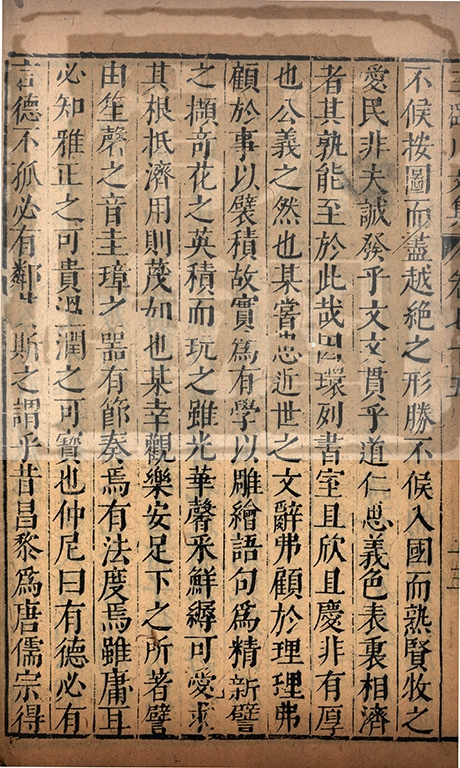 不候按圖而盡越絶之形勝不候入國而熟賢牧之
愛民非夫誠發乎文文貫乎道仁思義色表裏相濟
者其孰能至於此哉因環列書室且欣且慶非有厚
也公義之然也某嘗患近世之文辭弗顧於理理弗
顧於事以襞積故實爲有學以雕繪語句爲精新譬
之擷竒花之英積而玩之雖光華馨采鮮縟可愛求
其根柢濟用則蔑如也某幸觀樂安足下之所著譬
由笙磬之音圭璋之噐有節奏焉有法度焉雖庸耳
必知雅正之可貴溫潤之可寶也仲尼曰有德必有
言德不孤必有鄰其斯之謂乎昔昌黎爲唐儒宗得